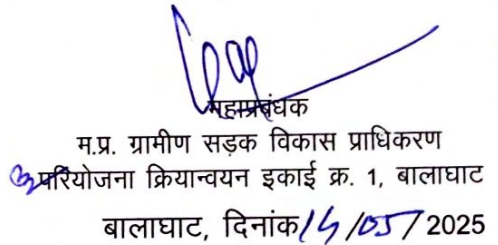 महाप्रबंधक
म.प्र. ग्रामीण सड़क विकास प्राधिकरण
परियोजना क्रियान्वयन इकाई क्र. 1, बालाघाट
बालाघाट, दिनांक 14/05/2025